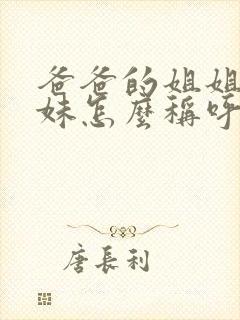 爸爸的姐姐
妹怎麼稱呼
唐長利